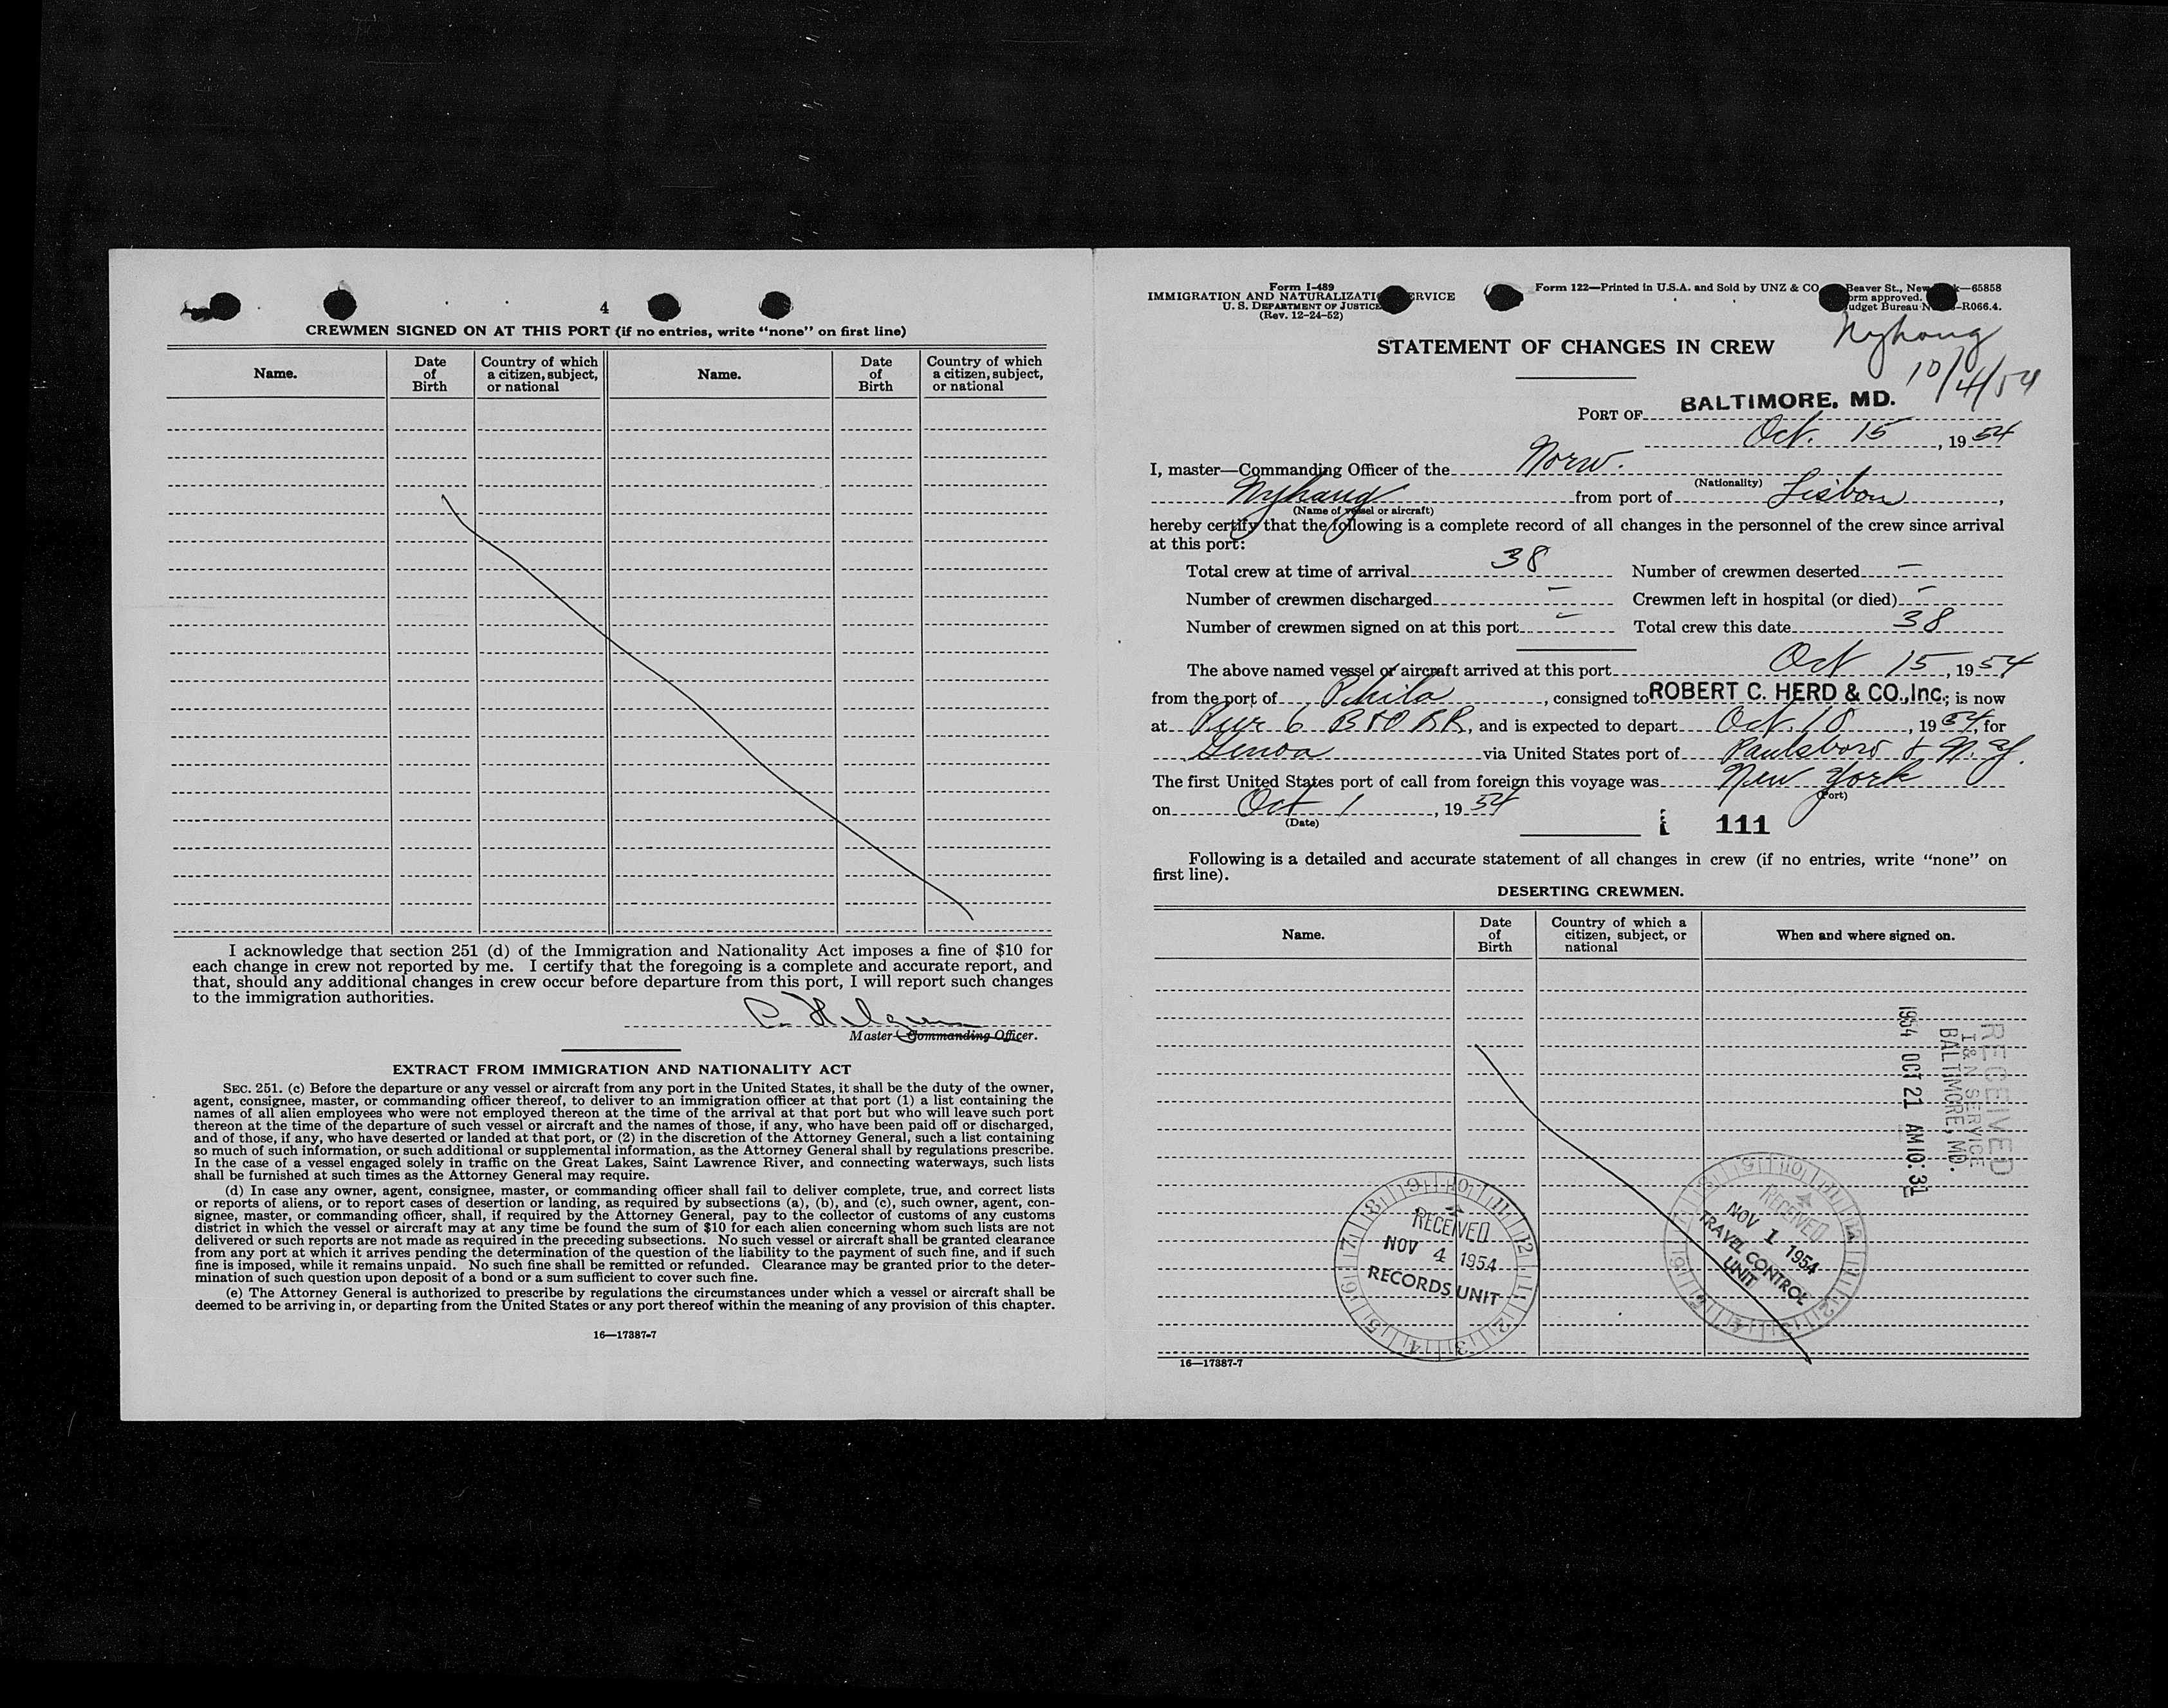 4
CREWMEN SIGNED ON AT THIS PORT (if no entries, write “none” on first line)
Name.
Date of Birth
Country of which a citizen, subject, or national
Name.
Date of Birth
Country of which a citizen, subject, or national
I acknowledge that section 251 (d) of the Immigration and Nationality Act imposes a fine of $10 for
each change in crew not reported by me. I certify that the foregoing is a complete and accurate report, and
that, should any additional changes in crew occur before departure from this port, I will report such changes
to the immigration authorities.
Master—Commanding Officer.
EXTRACT FROM IMMIGRATION AND NATIONALITY ACT
SEC. 251. (c) Before the departure or any vessel or aircraft from any port in the United States, it shall be the duty of the owner,
agent, consignee, master, or commanding officer thereof, to deliver to an immigration officer at that port (1) a list containing the
names of all alien employees who were not employed thereon at the time of the arrival at that port but who will leave such port
thereon at the time of the departure of such vessel or aircraft and the names of those, if any, who have been paid off or discharged,
and of those, if any, who have deserted or landed at that port, or (2) in the discretion of the Attorney General, such a list containing
so much of such information, or such additional or supplemental information, as the Attorney General shall by regulations prescribe.
In the case of a vessel engaged solely in traffic on the Great Lakes, Saint Lawrence River, and connecting waterways, such lists
shall be furnished at such times as the Attorney General may require.
(d) In case any owner, agent, consignee, master, or commanding officer shall fail to deliver complete, true, and correct lists
or reports of aliens, or to report cases of desertion or landing, as required by subsections (a), (b), and (c), such owner, agent, con-
signee, master, or commanding officer, shall, if required by the Attorney General, pay to the collector of customs of any customs
district in which the vessel or aircraft may at any time be found the sum of $10 for each alien concerning whom such lists are not
delivered or such reports are not made as required in the preceding subsections. No such vessel or aircraft shall be granted clearance
from any port at which it arrives pending the determination of the question of the liability to the payment of such fine, and if such
fine is imposed, while it remains unpaid. No such fine shall be remitted or refunded. Clearance may be granted prior to the deter-
mination of such question upon deposit of a bond or a sum sufficient to cover such fine.
(e) The Attorney General is authorized to prescribe by regulations the circumstances under which a vessel or aircraft shall be
deemed to be arriving in, or departing from the United States or any port thereof within the meaning of any provision of this chapter.
16—17387-7
Form I-489
IMMIGRATION AND NATURALIZATI ERVICE
U. S. DEPARTMENT OF JUSTICE
(Rev. 12-24-52)
Form 122—Printed in U.S.A. and Sold by UNZ & CO Beaver St., New k—65858
orm approved.
udget Bureau N –R066.4.
Nyhaug
10/4/54
STATEMENT OF CHANGES IN CREW
PORT OF BALTIMORE, MD.
Oct. 15, 1954
I, master—Commanding Officer of the Norw.
(Nationality)
Nyhaug from port of Lisbon,
(Name of vessel or aircraft)
hereby certify that the following is a complete record of all changes in the personnel of the crew since arrival
at this port:
Total crew at time of arrival 38 Number of crewmen deserted –
Number of crewmen discharged – Crewmen left in hospital (or died) –
Number of crewmen signed on at this port – Total crew this date 38
The above named vessel or aircraft arrived at this port Oct 15, 1954
from the port of Phila, consigned to ROBERT C. HERD & CO., Inc.; is now
at Pier 6 B&O RR, and is expected to depart Oct. 18, 1954, for
Genoa via United States port of Paulsboro & N.Y.
The first United States port of call from foreign this voyage was New York
(Port)
on Oct 1, 1954
(Date)
111
Following is a detailed and accurate statement of all changes in crew (if no entries, write “none” on
first line).
DESERTING CREWMEN.
Name.
Date of Birth
Country of which a citizen, subject, or national
When and where signed on.
RECEIVED
I & N SERVICE
BALTIMORE, MD.
1954 OCT 21 AM 10:31
RECEIVED
NOV 4 1954
RECORDS UNIT
RECEIVED
NOV 1 1954
TRAVEL CONTROL
UNIT
16—17387-7